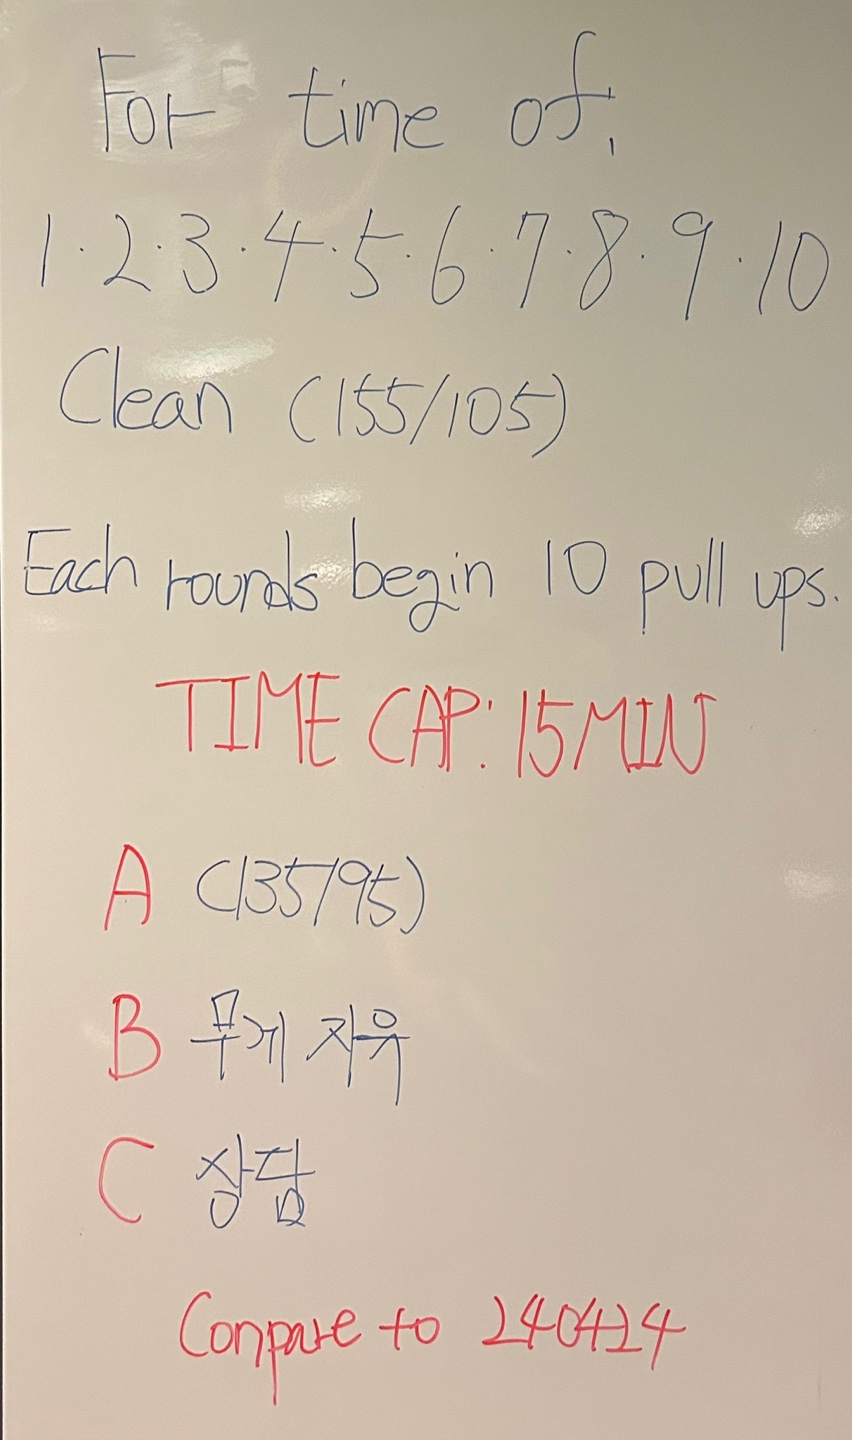 For time of,
1·2·3·4·5·6·7·8·9·10
Clean (155/105)
Each rounds begin 10 pull ups.
TIME CAP: 15MIN
A (135/95)
B 무게 자유
C 상담
Compare to 240424